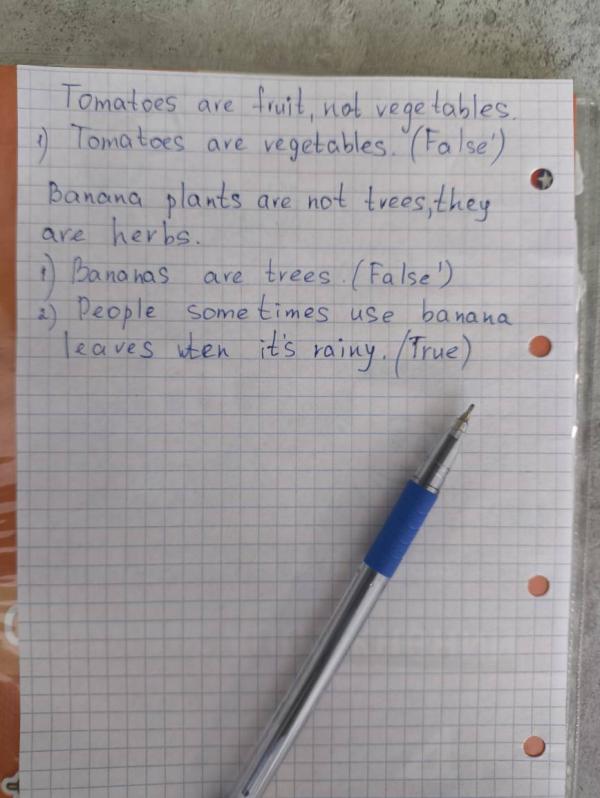 Tomatoes are fruit, not vegetables.
1) Tomatoes are vegetables. (False)
Banana plants are not trees, they
are herbs.
1) Bananas are trees. (False)
2) People sometimes use banana
leaves wten it's rainy. (True)